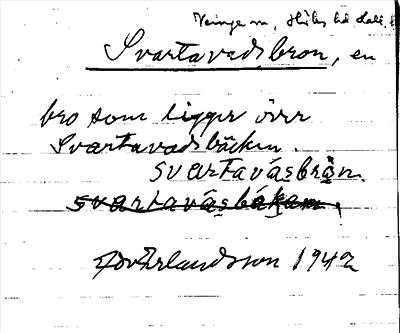 Veinge sn, Höks hd Hall.
Svartavadsbron, en
bro som ligger över
Svartavadsbäcken.
svartavásbrån.
svartavásbäkam.
Edv Erlandsson 1942